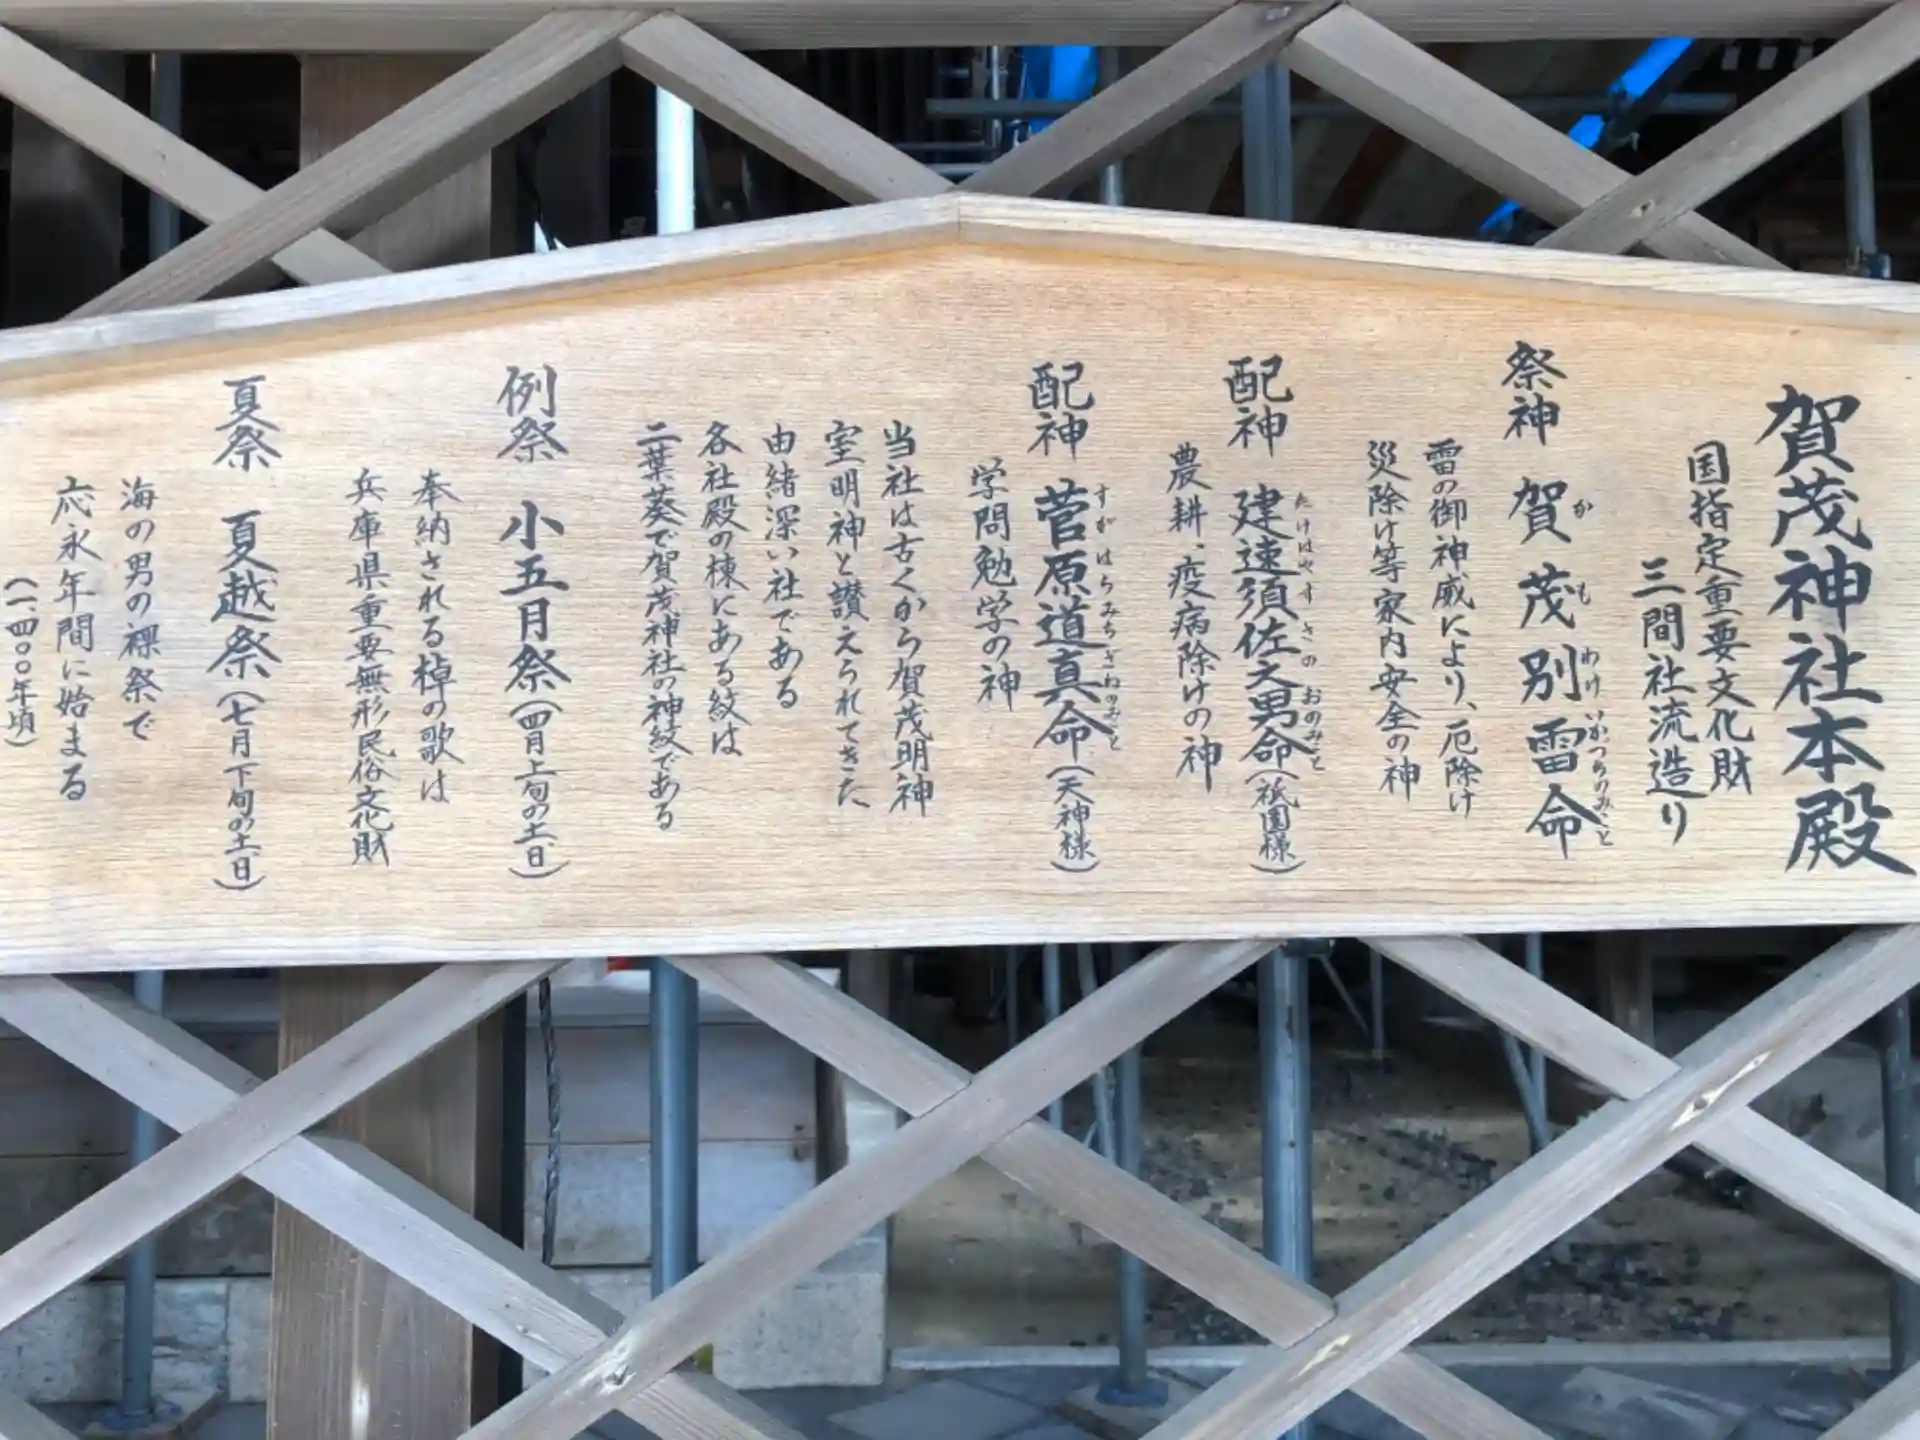 賀茂神社本殿
国指定重要文化財
三間社流造り
祭神 賀茂別雷命
か も わけ いかつちのみこと
雷の御神威により、厄除け
災除け等家内安全の神
配神 建速須佐之男命(祇園様)
たけはやすさのおのみこと
農耕、疫病除けの神
配神 菅原道真命(天神様)
すがはらみちざねのみこと
学問勉学の神
当社は古くから賀茂明神
室明神と讃えられてきた
由緒深い社である
各社殿の棟にある紋は
二葉葵で賀茂神社の神紋である
例祭 小五月祭(四月上旬の土、日)
奉納される棹の歌は
兵庫県重要無形民俗文化財
夏祭 夏越祭(七月下旬の土、日)
海の男の裸祭で
応永年間に始まる
(一、四〇〇年頃)